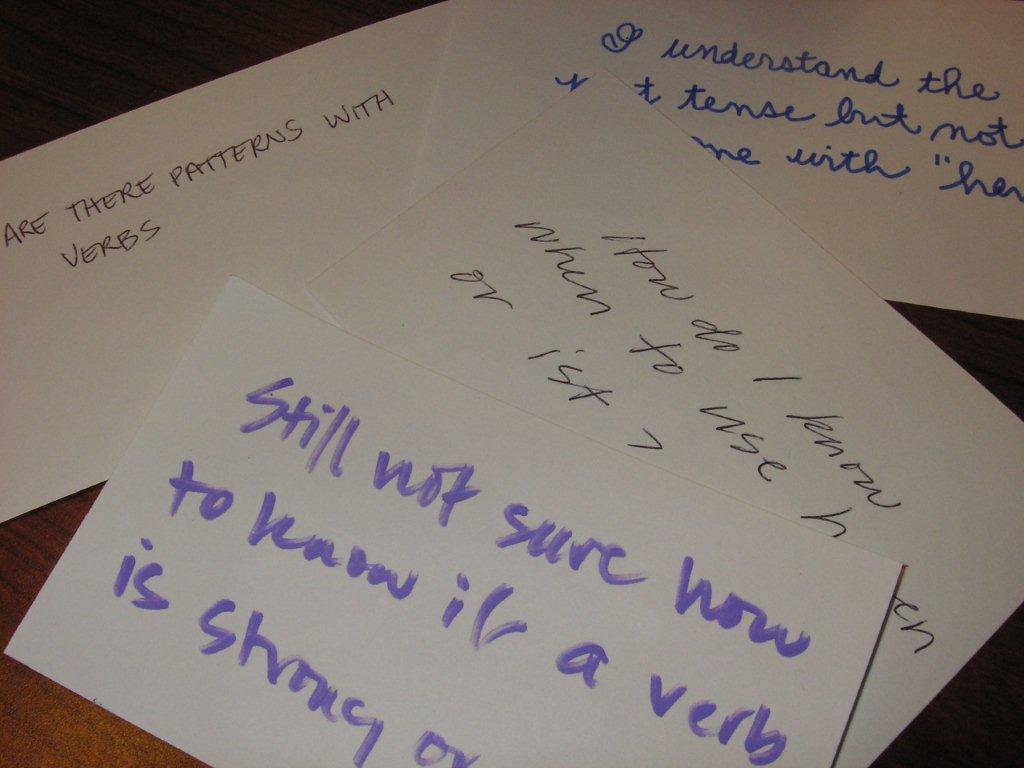 ARE THERE PATTERNS WITH
VERBS
I understand the
tense but not
with "
How do I know
when to use h
or ist ?
Still not sure how
to know if a verb
is strong or